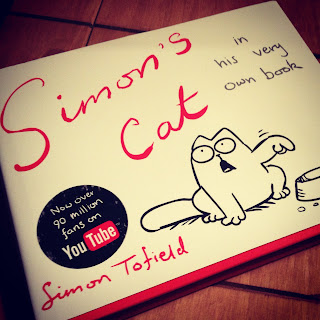 Simon's
Cat
in
his very
own book
Now over
90 million
fans on
YouTube
Simon Tofield